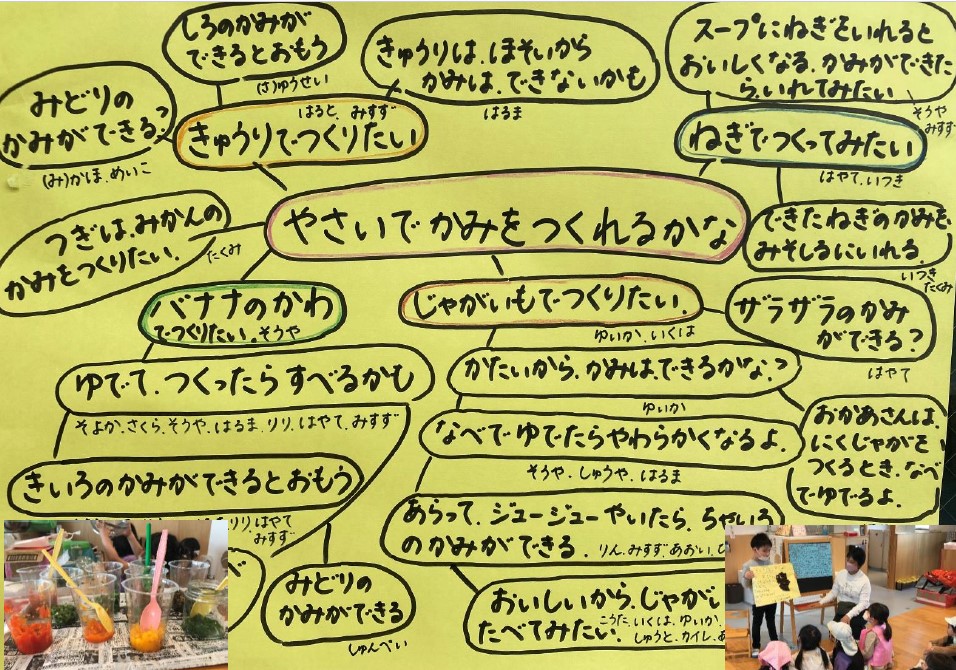 しろのかみが
できるとおもう
(さ)ゆうせい
きゅうりは、ほそいから
かみは、できないかも
はるま
スープにねぎをいれると
おいしくなる。かみができた
ら、いれてみたい
そうや
みすず
みどりの
かみができる?
(み)かほ、めいこ
はると、みすず
きゅうりでつくりたい
ねぎでつくってみたい
はやて、いつき
やさいでかみをつくれるかな
つぎは、みかんの
かみをつくりたい。
たくみ
できたねぎのかみを、
みそしるにいれる。
いつき
たくみ
バナナのかわ
でつくりたい。そうや
じゃがいもでつくりたい。
ゆいか、いくは
ザラザラのかみ
ができる?
はやて
ゆでて、つくったらすべるかも
そよか、さくら、そうや、はるま、リリ、はやて、みすず
かたいから、かみは、できるかな?
ゆいか
なべでゆでたらやわらかくなるよ。
そうや、しゅうや、はるま
おかあさんは、
にくじゃがを
つくるとき、なべ
でゆでるよ。
きいろのかみができるとおもう
リリ、はやて
みすず
あらって、ジュージューやいたら、ちゃいろ
のかみができる。りん、みすず、あおい、ひ
みどりの
かみができる
しゅんぺい
おいしいから、じゃが
たべてみたい。
こうた、いくは、ゆいか、
しゅうと、カイル、あ